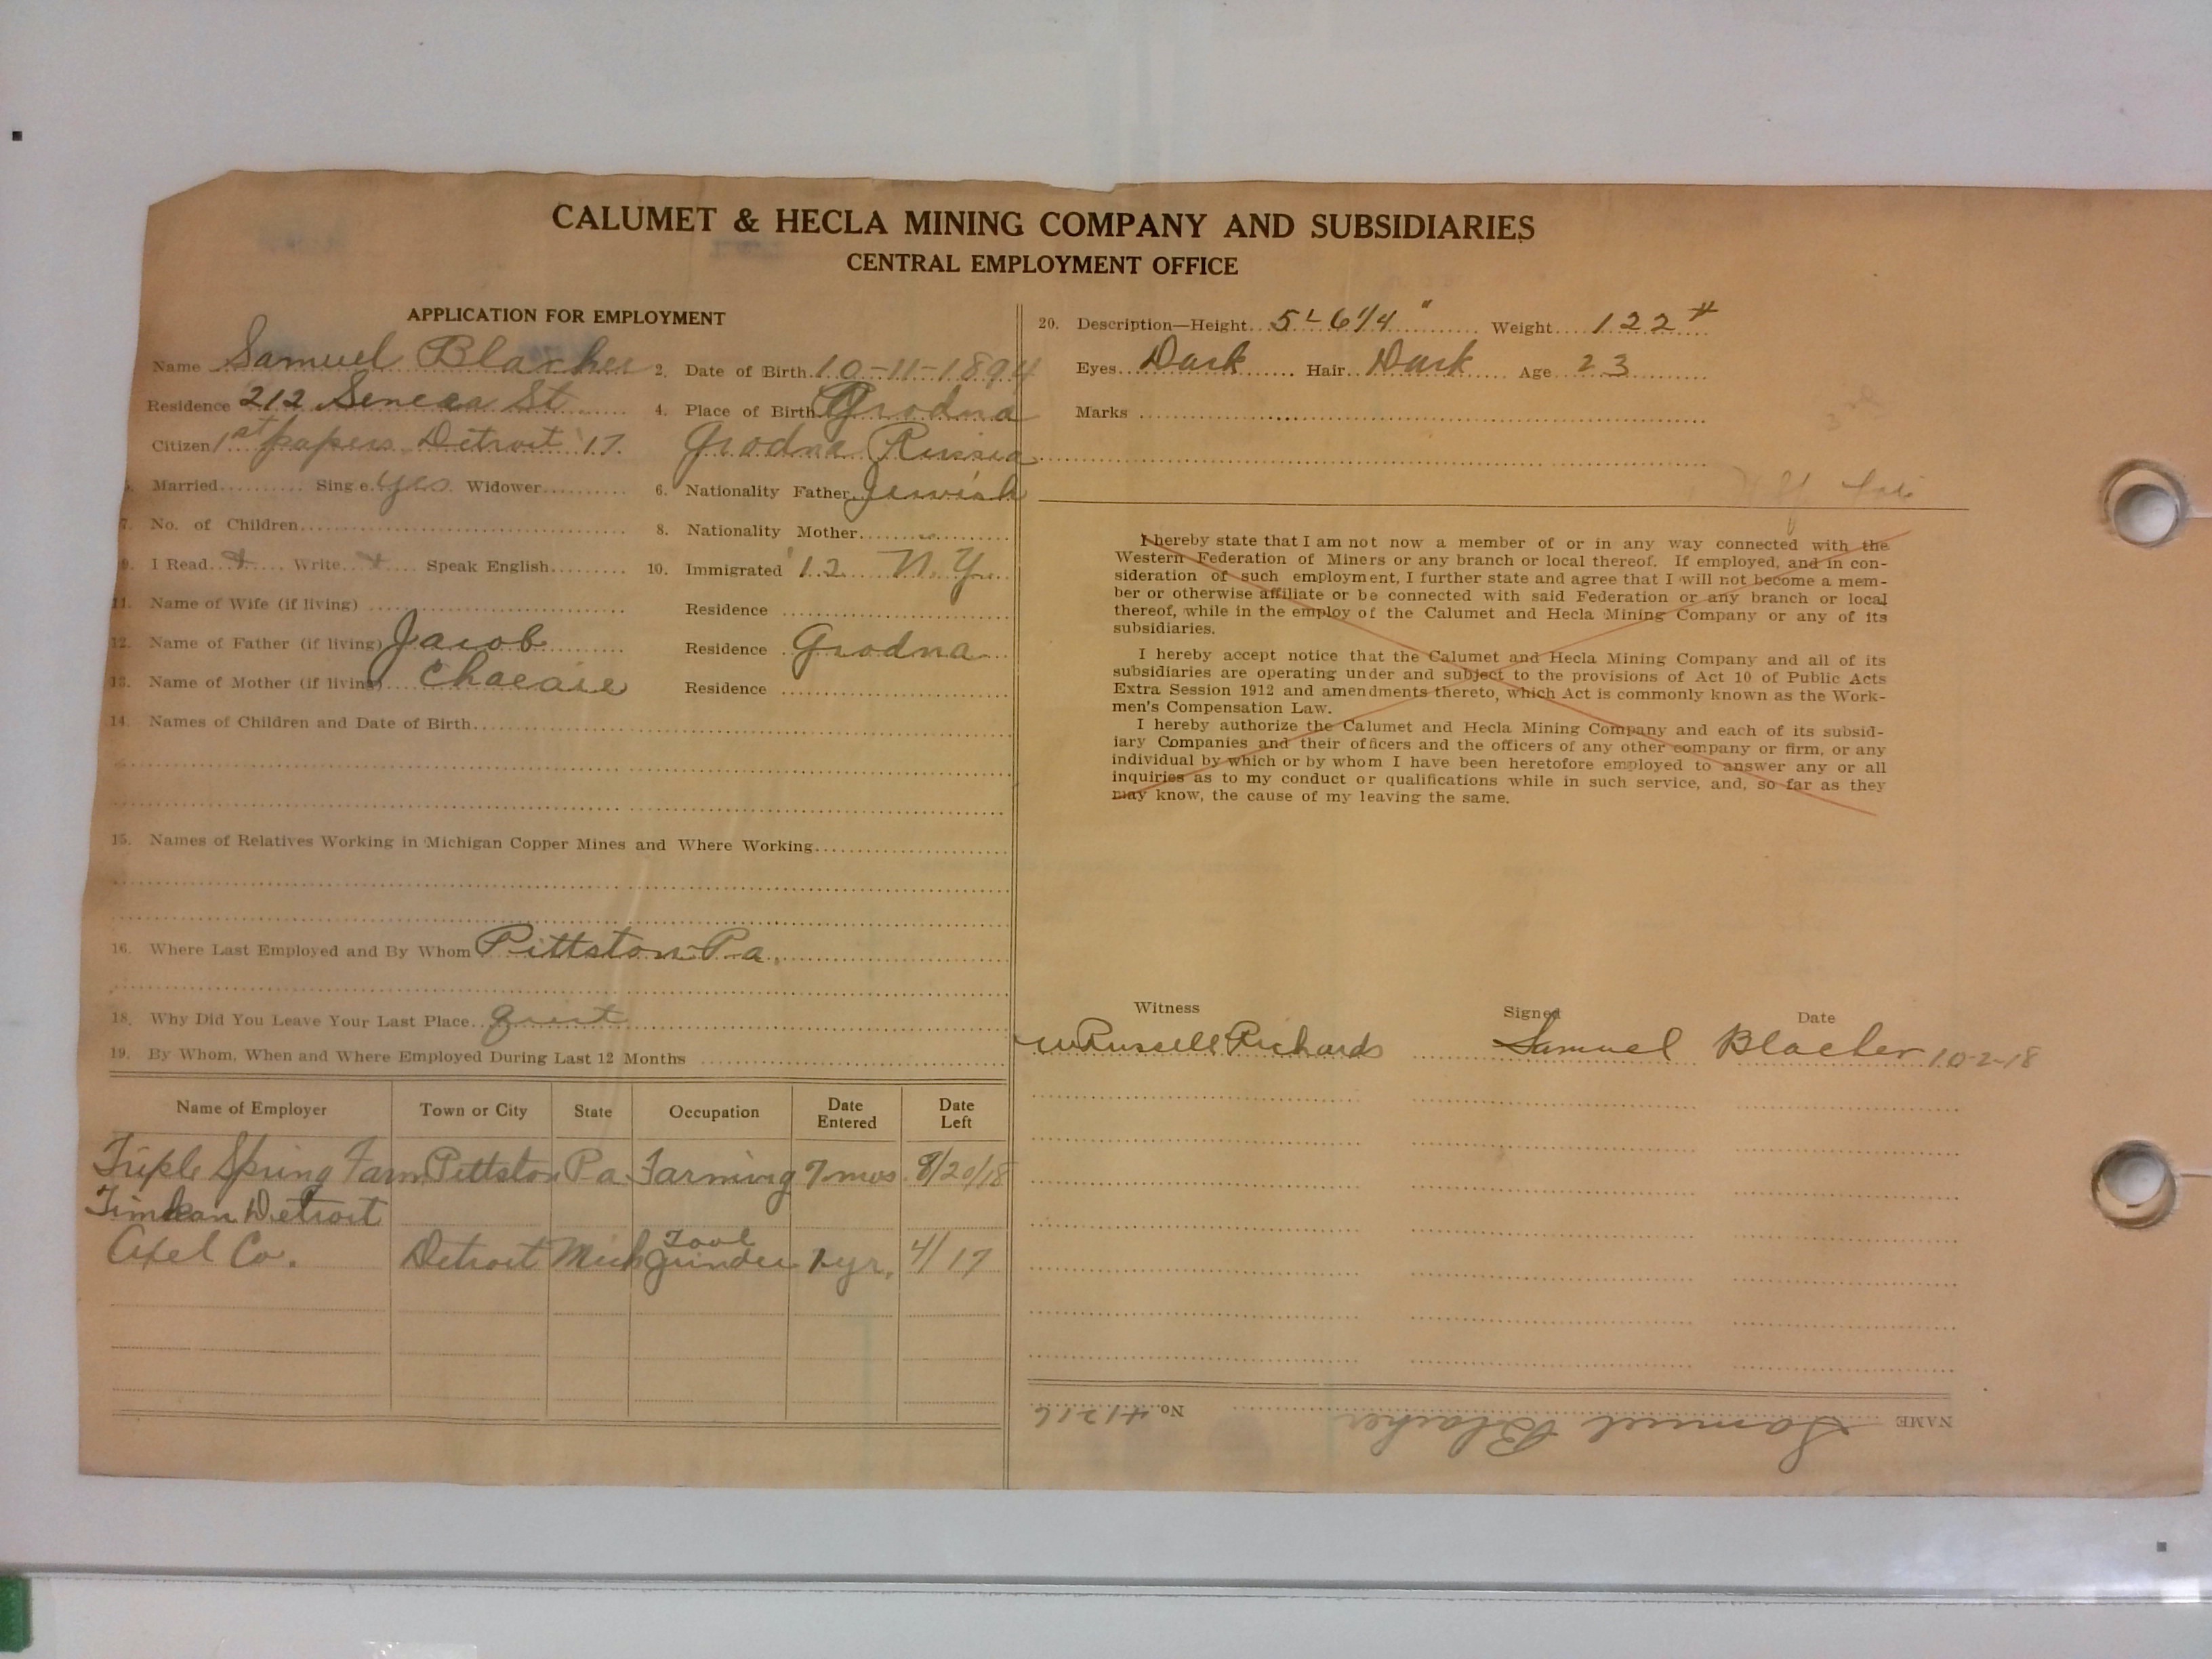 CALUMET & HECLA MINING COMPANY AND SUBSIDIARIES
CENTRAL EMPLOYMENT OFFICE
APPLICATION FOR EMPLOYMENT
Name Samuel Blacher 2. Date of Birth 10-11-1894
Residence 212 Seneca St 4. Place of Birth Grodna
Citizen 1st papers Detroit '17. Grodna Russia
Married Single yes Widower 6. Nationality Father Jewish
7. No. of Children 8. Nationality Mother "
9. I Read Write Speak English 10. Immigrated '12 N.Y.
11. Name of Wife (if living) Residence
12. Name of Father (if living) Jacob Residence Grodna
13. Name of Mother (if living) Residence
14. Names of Children and Date of Birth
15. Names of Relatives Working in Michigan Copper Mines and Where Working
16. Where Last Employed and By Whom Pittston Pa.
18. Why Did You Leave Your Last Place quit
19. By Whom, When and Where Employed During Last 12 Months
Name of Employer Town or City State Occupation Date Entered Date Left
Triple Spring Farm Pittston Pa Farming 7 mos 8/20/18
Timkan Detroit
Axel Co. Detroit Mich Tool Grinder 1 yr. 4/17
20. Description—Height 5'-6 1/4" Weight 122#
Eyes Dark Hair Dark Age 23
Marks
I hereby state that I am not now a member of or in any way connected with the
Western Federation of Miners or any branch or local thereof. If employed, and in con-
sideration of such employment, I further state and agree that I will not become a mem-
ber or otherwise affiliate or be connected with said Federation or any branch or local
thereof, while in the employ of the Calumet and Hecla Mining Company or any of its
subsidiaries.
I hereby accept notice that the Calumet and Hecla Mining Company and all of its
subsidiaries are operating under and subject to the provisions of Act 10 of Public Acts
Extra Session 1912 and amendments thereto, which Act is commonly known as the Work-
men's Compensation Law.
I hereby authorize the Calumet and Hecla Mining Company and each of its subsid-
iary Companies and their officers and the officers of any other company or firm, or any
individual by which or by whom I have been heretofore employed to answer any or all
inquiries as to my conduct or qualifications while in such service, and, so far as they
may know, the cause of my leaving the same.
Witness Signed Date
W Russell Richards Samuel Blacher 10-2-18
NAME Samuel Blacher No. 41216